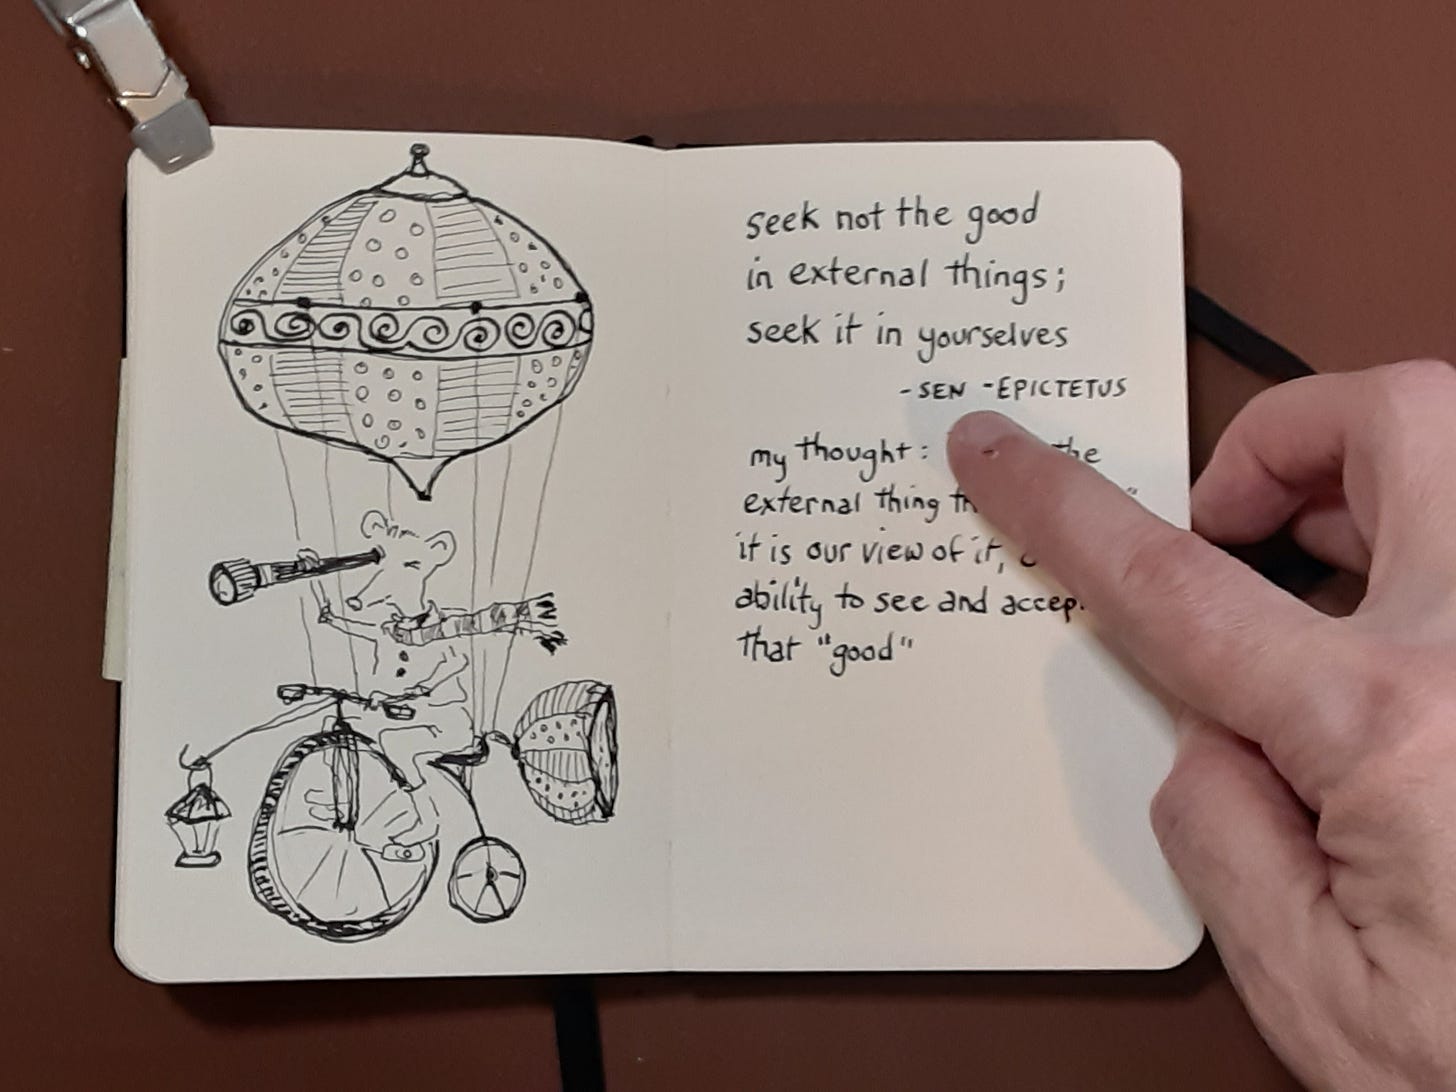 seek not the good
in external things;
seek it in yourselves
- SEN - EPICTETUS
my thought: the
external thing
it is our view of it,
ability to see and
that "good"